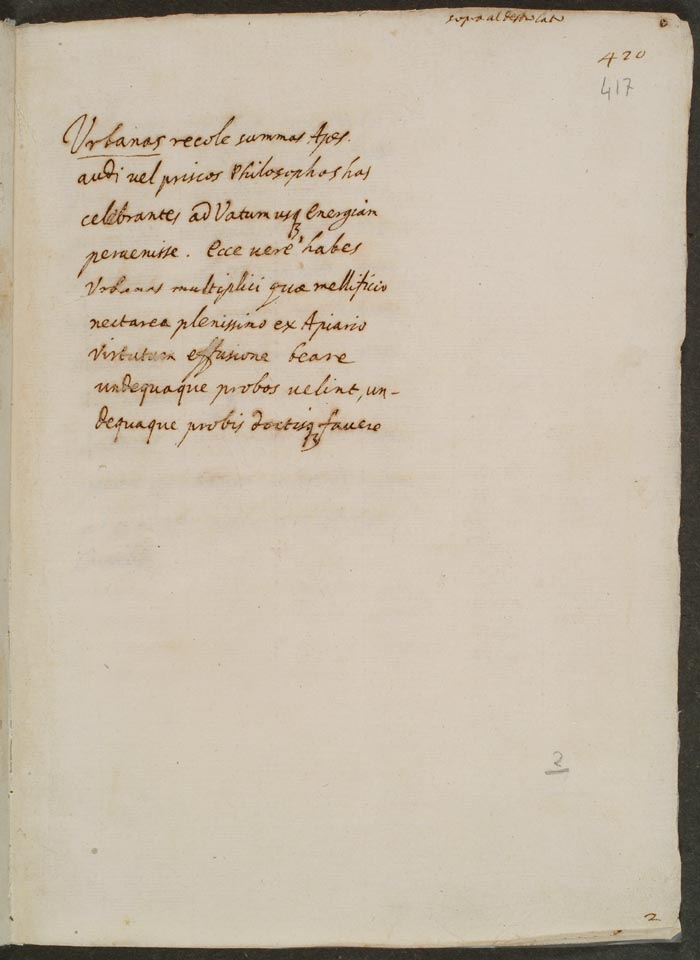 sopra al destro lato
420
417
Vrbanas recole summas Apes.
audi vel priscos Philosophos has
celebrantes ad Vatum usq3 Energian
peruenisse. Ecce uere habes
Vrbanas multiplici quæ mellificio
nectarea plenissimo ex Apiario
Virtutum effusione beare
undequaque probos uelint, un-
dequaque probis doctisq3 fauere
2
2